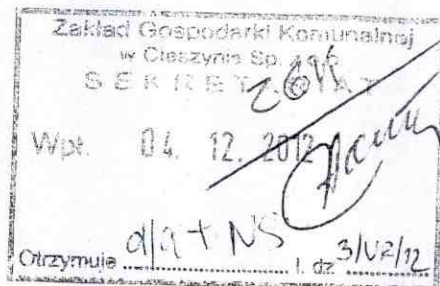 Zakład Gospodarki Komunalnej
w Cieszynie Sp. z o.o.
SEKRETARIAT
Wpł. 04. 12. 2012
Otrzymuje a/a + NS l. dz